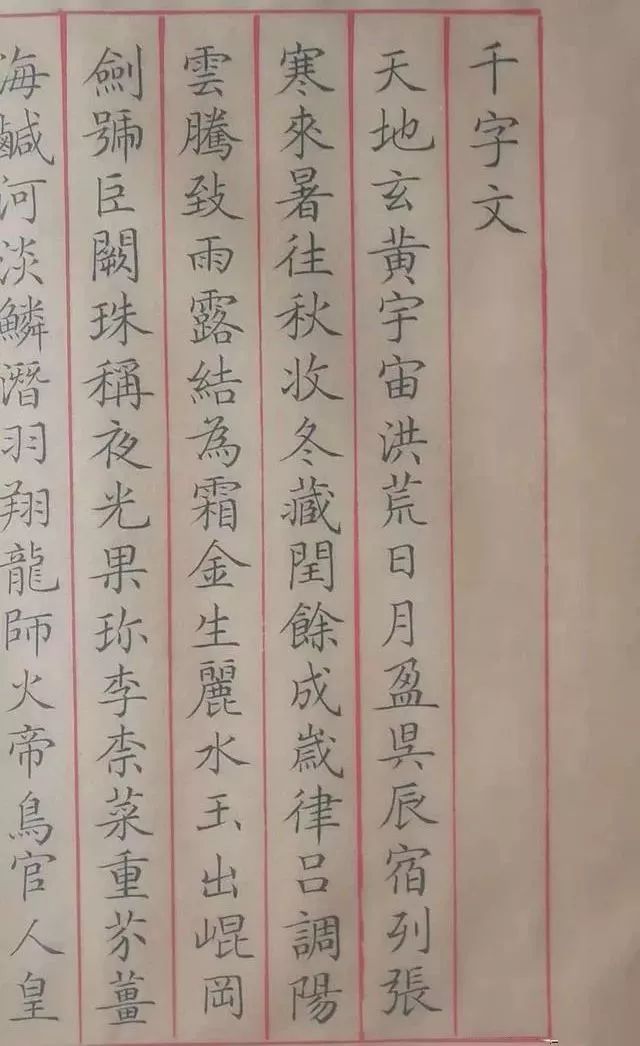 千字文
天地玄黃宇宙洪荒日月盈昃辰宿列張
寒來暑往秋收冬藏閏餘成歲律呂調陽
雲騰致雨露結為霜金生麗水玉出崐岡
劍號巨闕珠稱夜光果珍李柰菜重芥薑
海鹹河淡鱗潛羽翔龍師火帝鳥官人皇